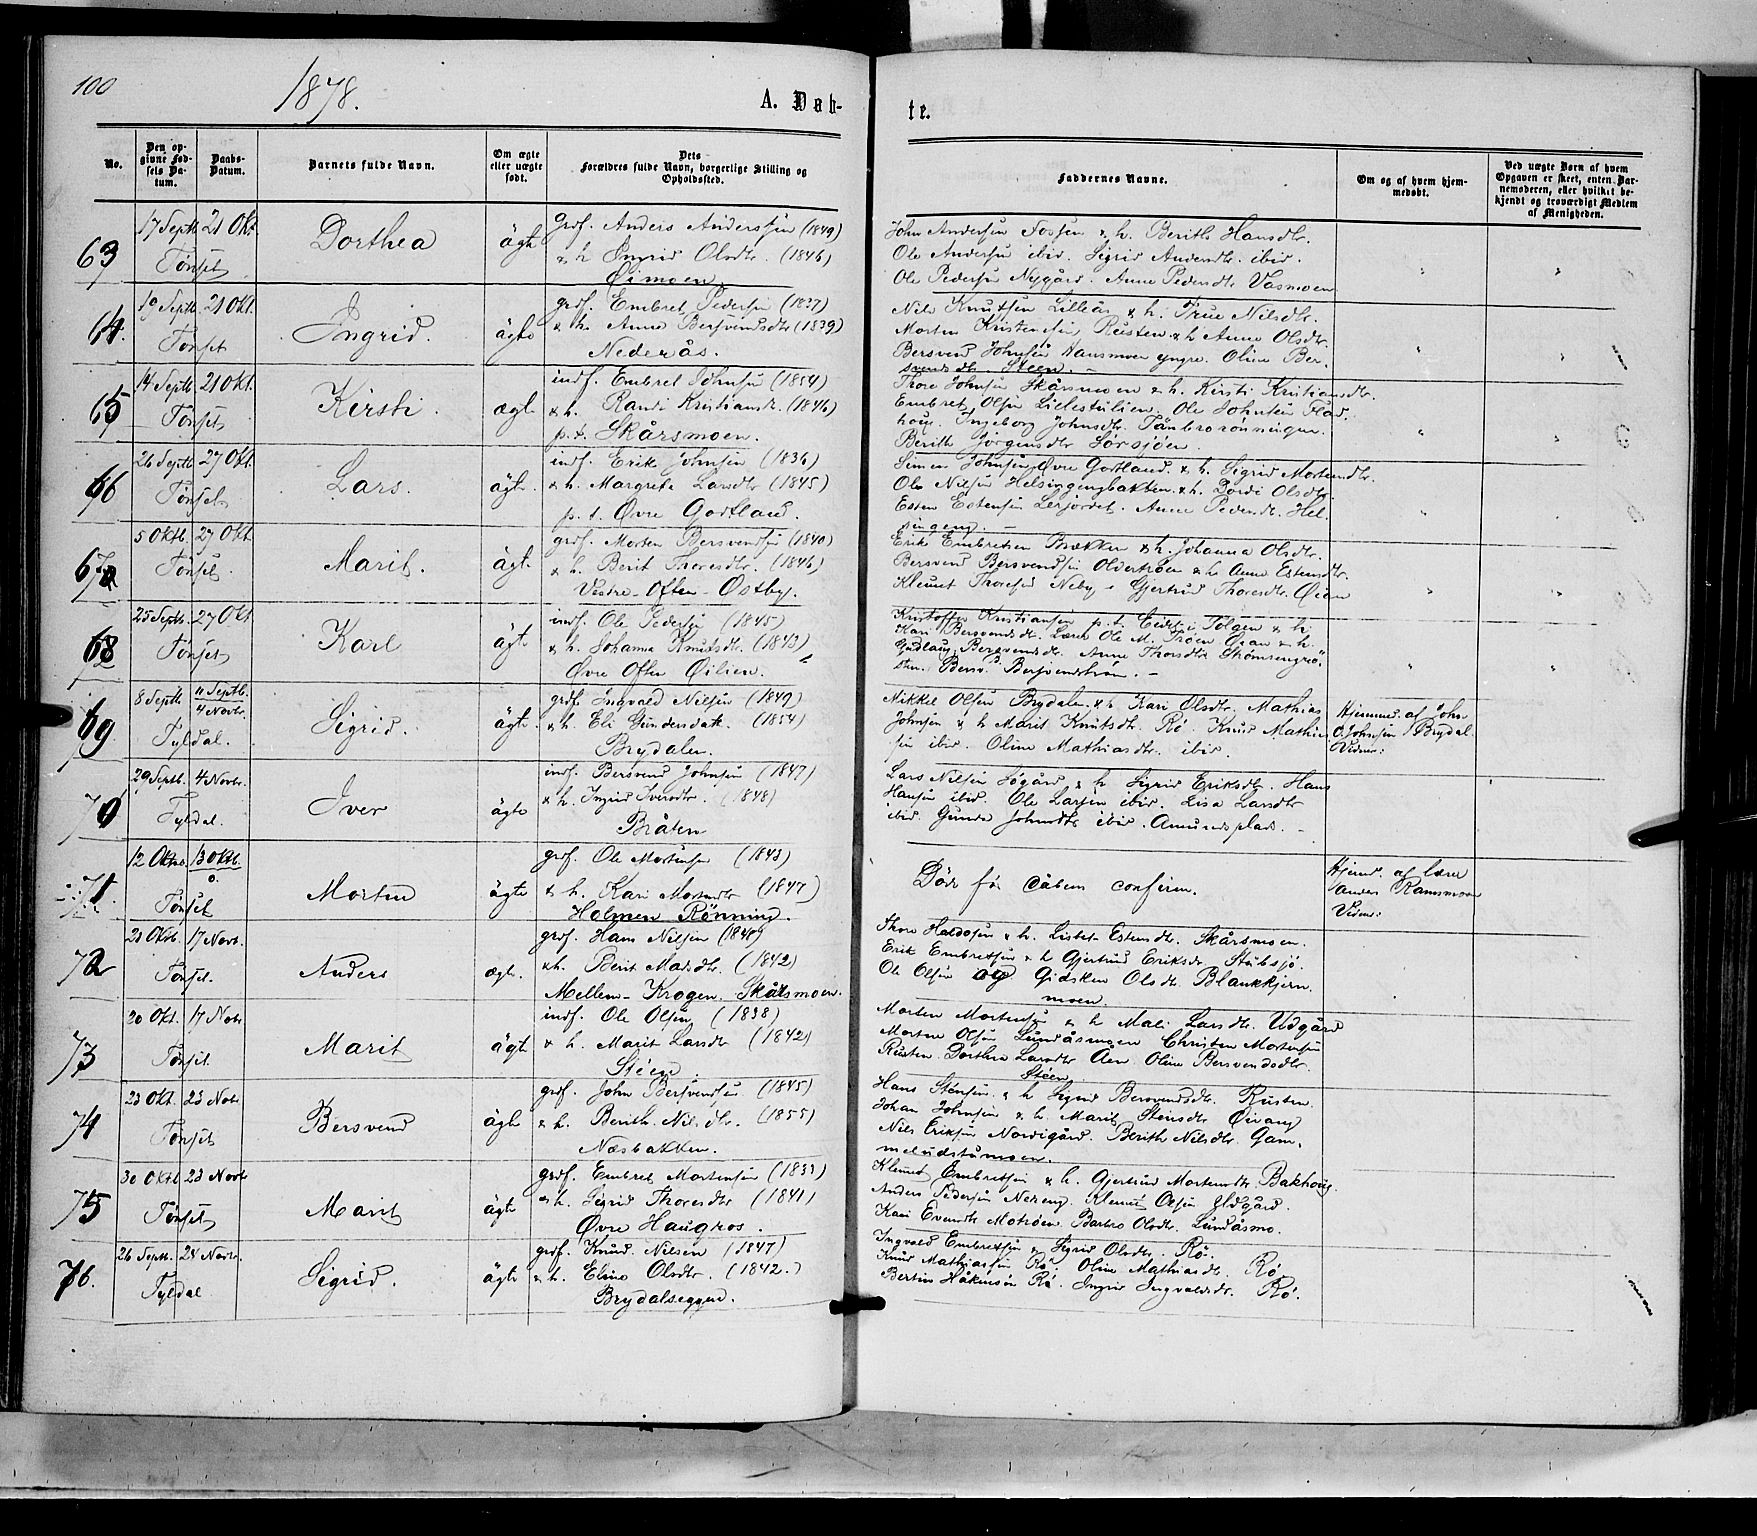 100
1878.
A. Døb-
te.
No.
Den op-
givne Fød-
sels Da-
tum.
Daabs-
Datum.
Barnets fulde Navn.
Om ægte
eller uægte
født.
Dets
Forældres fulde Navn, borgerlige Stilling og
Opholdssted.
Faddernes Navne.
Om og af hvem hjem-
medøbt.
Ved uægte Børn af hvem
Opgaven er skeet, enten Bar-
nemoderen, eller hvilket be-
kjendt og troværdigt Medlem
af Menigheden.
63
17 Septb 21 Okt.
Tønset
Dorthea
ägte
grdf. Anders Anderssen (1849)
& h Ingrid Olsdtr. (1846)
Øimoen
John Andersen Fossen & h. Berith Hansdtr.
Ole Andersen ibid. Sigrid Andersdtr. ibid.
Ole Pedersen Nygård. Anne Pedersdtr Vasmoen
64.
19 Septb 21 Okt.
Tønset
Ingrid.
ägte
grdf. Embret Pedersen (1837)
& h. Anne Bersvendsdtr (1839)
Nederås.
Nils Knutsen Lilleån & h. True Nilsdtr.
Morten Kristensen Rusten & h Anne Olsdtr.
Bersvend Johnsen Aansmoen yngre. Oline Ber-
svendsdtr Steen. -
65
14 Septb 21 Okt.
Tønset
Kirsti.
ægte
indf. Embret Johnsen (1854)
& h. Randi Kristiansdtr. (1846)
p. t. Skårsmoen.
Thore Johnsen Skårsmoen & h. Kirsti Kristiansdtr.
Embret Olsen Lilestulien. Ole Johnsen Flad-
houg. Ingeborg Johnsdtr. Tånbrorönningen.
Berith Jörgensdtr Sörsjöen
66
26 Septb 27 Okt.
Tønset
Lars.
ägte.
indf. Erik Johnsen (1836)
& h. Margrete Larsdtr (1845)
p. t. Øvre Godtland.
Simen Johnsen Øvre Godtland & h. Sigrid Mortensdtr.
Ole Nilsen Helsingengbakken & h. Dordi Olsdtr.
Esten Estensen Lerjordet. Anne Pedersdtr. Hel-
singeng. -
67
5 Oktb. 27 Okt
Tønset.
Marit.
ägt.
grdf. Morten Bersvendsen (1840)
& h. Berit Thoresdtr. (1846)
Vestre-Often-Østby.
Erik Embretsen Brækken & h. Johanna Olsdtr.
Bersvend Bersvendsen Oldertröen & h Anne Estensdtr.
Klemet Thoresen Neby - Gjertrud Thoresdtr. Øian
68
25 Septb. 27 Okt
Tønset
Karl
ägte
indf. Ole Pedersen (1845)
& h. Johanna Knutsdtr. (1843)
Øvre Often Øilien.
Kristoffer Kristiansen p. t. Eidet i Tolgen & h.
Kari Bersvendsdtr. Lærer Ole M. Tröen Øian & h.
Gudlaug Bersvendsdtr. Anne Thorsdtr
sten. Bersv. Bersvendströen. -
69
8 Septb 11 Septb.
4 Novbr.
Tyldal.
Sigrid.
ägte.
grdf. Ingvald Nilsen (1849)
& h. Eli Gundersdatt. (1854)
Brydalen.
Mikkel Olsen Brydalen & h. Kari Olsdtr. Mathias
Johnsen & h. Marit Knutsdtr. Rö. Knud Mathi-
sen ibid. Oline Mathiasdtr. ibid.
Hjemmed. af John
O. Johnsen Brydal.
Vidner:
70
29 Septb. 4 Novbr.
Tyldal.
Iver
ägte
indf. Bersvend Johnsen (1847)
& h. Ingrid Iversdtr. (1848)
Bråten
Lars Nilsen Søgård & h Sigrid Eriksdtr. Hans
Hansen ibid. Ole Larsen ibid. Lisa Larsdtr
ibid. Gunda Johnsdtr ibid. Amundsplads. -
71.
12 Oktbr. 13 Oktb.
0.
Tønset
Morten
ägte
grdf. Ole Mortensen (1843)
& h. Kari Mortensdtr (1847)
Holmen Rønning.
Døde før Dåbens confirm.
Hjemd. af lærer
Anders Ramsmoen
Vidner:
72
23 Oktb. 17 Novb.
Tønset.
Anders
ægte.
grdf. Hans Nilsen (1840)
& h. Berit Marsdtr. (1842)
Mellem-Krogen. Skårsmoen.
Thore Haldosen & h. Lisbet Estensdtr. Skårsmoen.
Erik Embretsen & h Gjertrud Eriksdtr Stubsjö.
Ole Olsen og Gidsken Olsdtr. Blankkjern-
moen.
73
20 Okt. 17 Novbr
Tønset.
Marit
ägte
indf. Ole Olsen (1838)
& h. Marit Larsdtr (1842)
Stöen
Morten Mortensen & h Mali Larsdtr. Udgård
Morten Olsen Lundåsmoen Christen Mortensen
Rusten. Dorthea Larsdtr Åen. Oline Bersvendsdtr.
Stöen
74
23 Okt. 23 Novbr
Tønset
Bersvend
ägte
grdf. John Bersvendsen (1845)
& h. Berith Nilsdtr. (1855)
Næsbakken.
Hans Stensen & h Sigrid Bersvendsdtr. Rusten.
Johan Johnsen & h. Marit Stensdtr Øivang
Nils Eriksen Nordigård. Berith Nilsdtr. Gam-
meludstumoen.
75
30 Oktb 23 Novbr
Tønset
Marit
ägte
grdf. Embret Mortensen (1833)
& h. Sigrid Thoresdtr (1841)
Øvre Haugros.
Klemet Embretsen & h. Gjertrud Mortensdtr. Bakhoug.
Anders Pedersen Nereng. Klemet Olsen Udgård.
Kari Evensdtr Motröen. Barbro Olsdtr. Lundåsmo.
76.
26 Septb. 24 Novbr.
Tyldal
Sigrid.
ägte
grdf. Knud Nilsen (1847)
& h. Eline Olsdtr. (1842.)
Brydalseggen.
Ingvald Embretsen & Sigrid Olsdtr. Rö.
Knud Mathiassen Rö. Oline Mathiasdtr. Rö
Bertin Håkensön Rö. Ingrid Ingvaldsdtr. Rö.